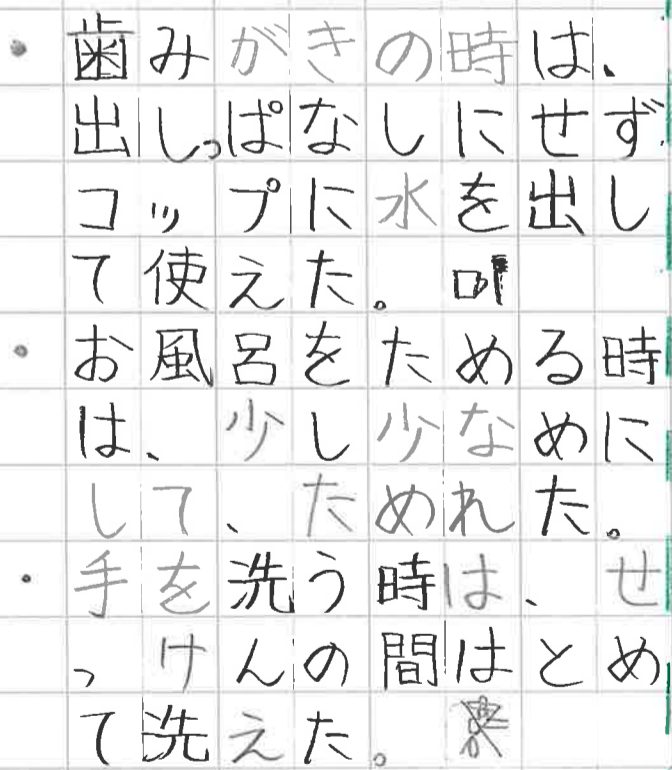 ・歯みがきの時は、
出しっぱなしにせず
コップに水を出し
て使えた。
・お風呂をためる時
は、少し少なめに
して、ためれた。
・手を洗う時は、せ
っけんの間はとめ
て洗えた。